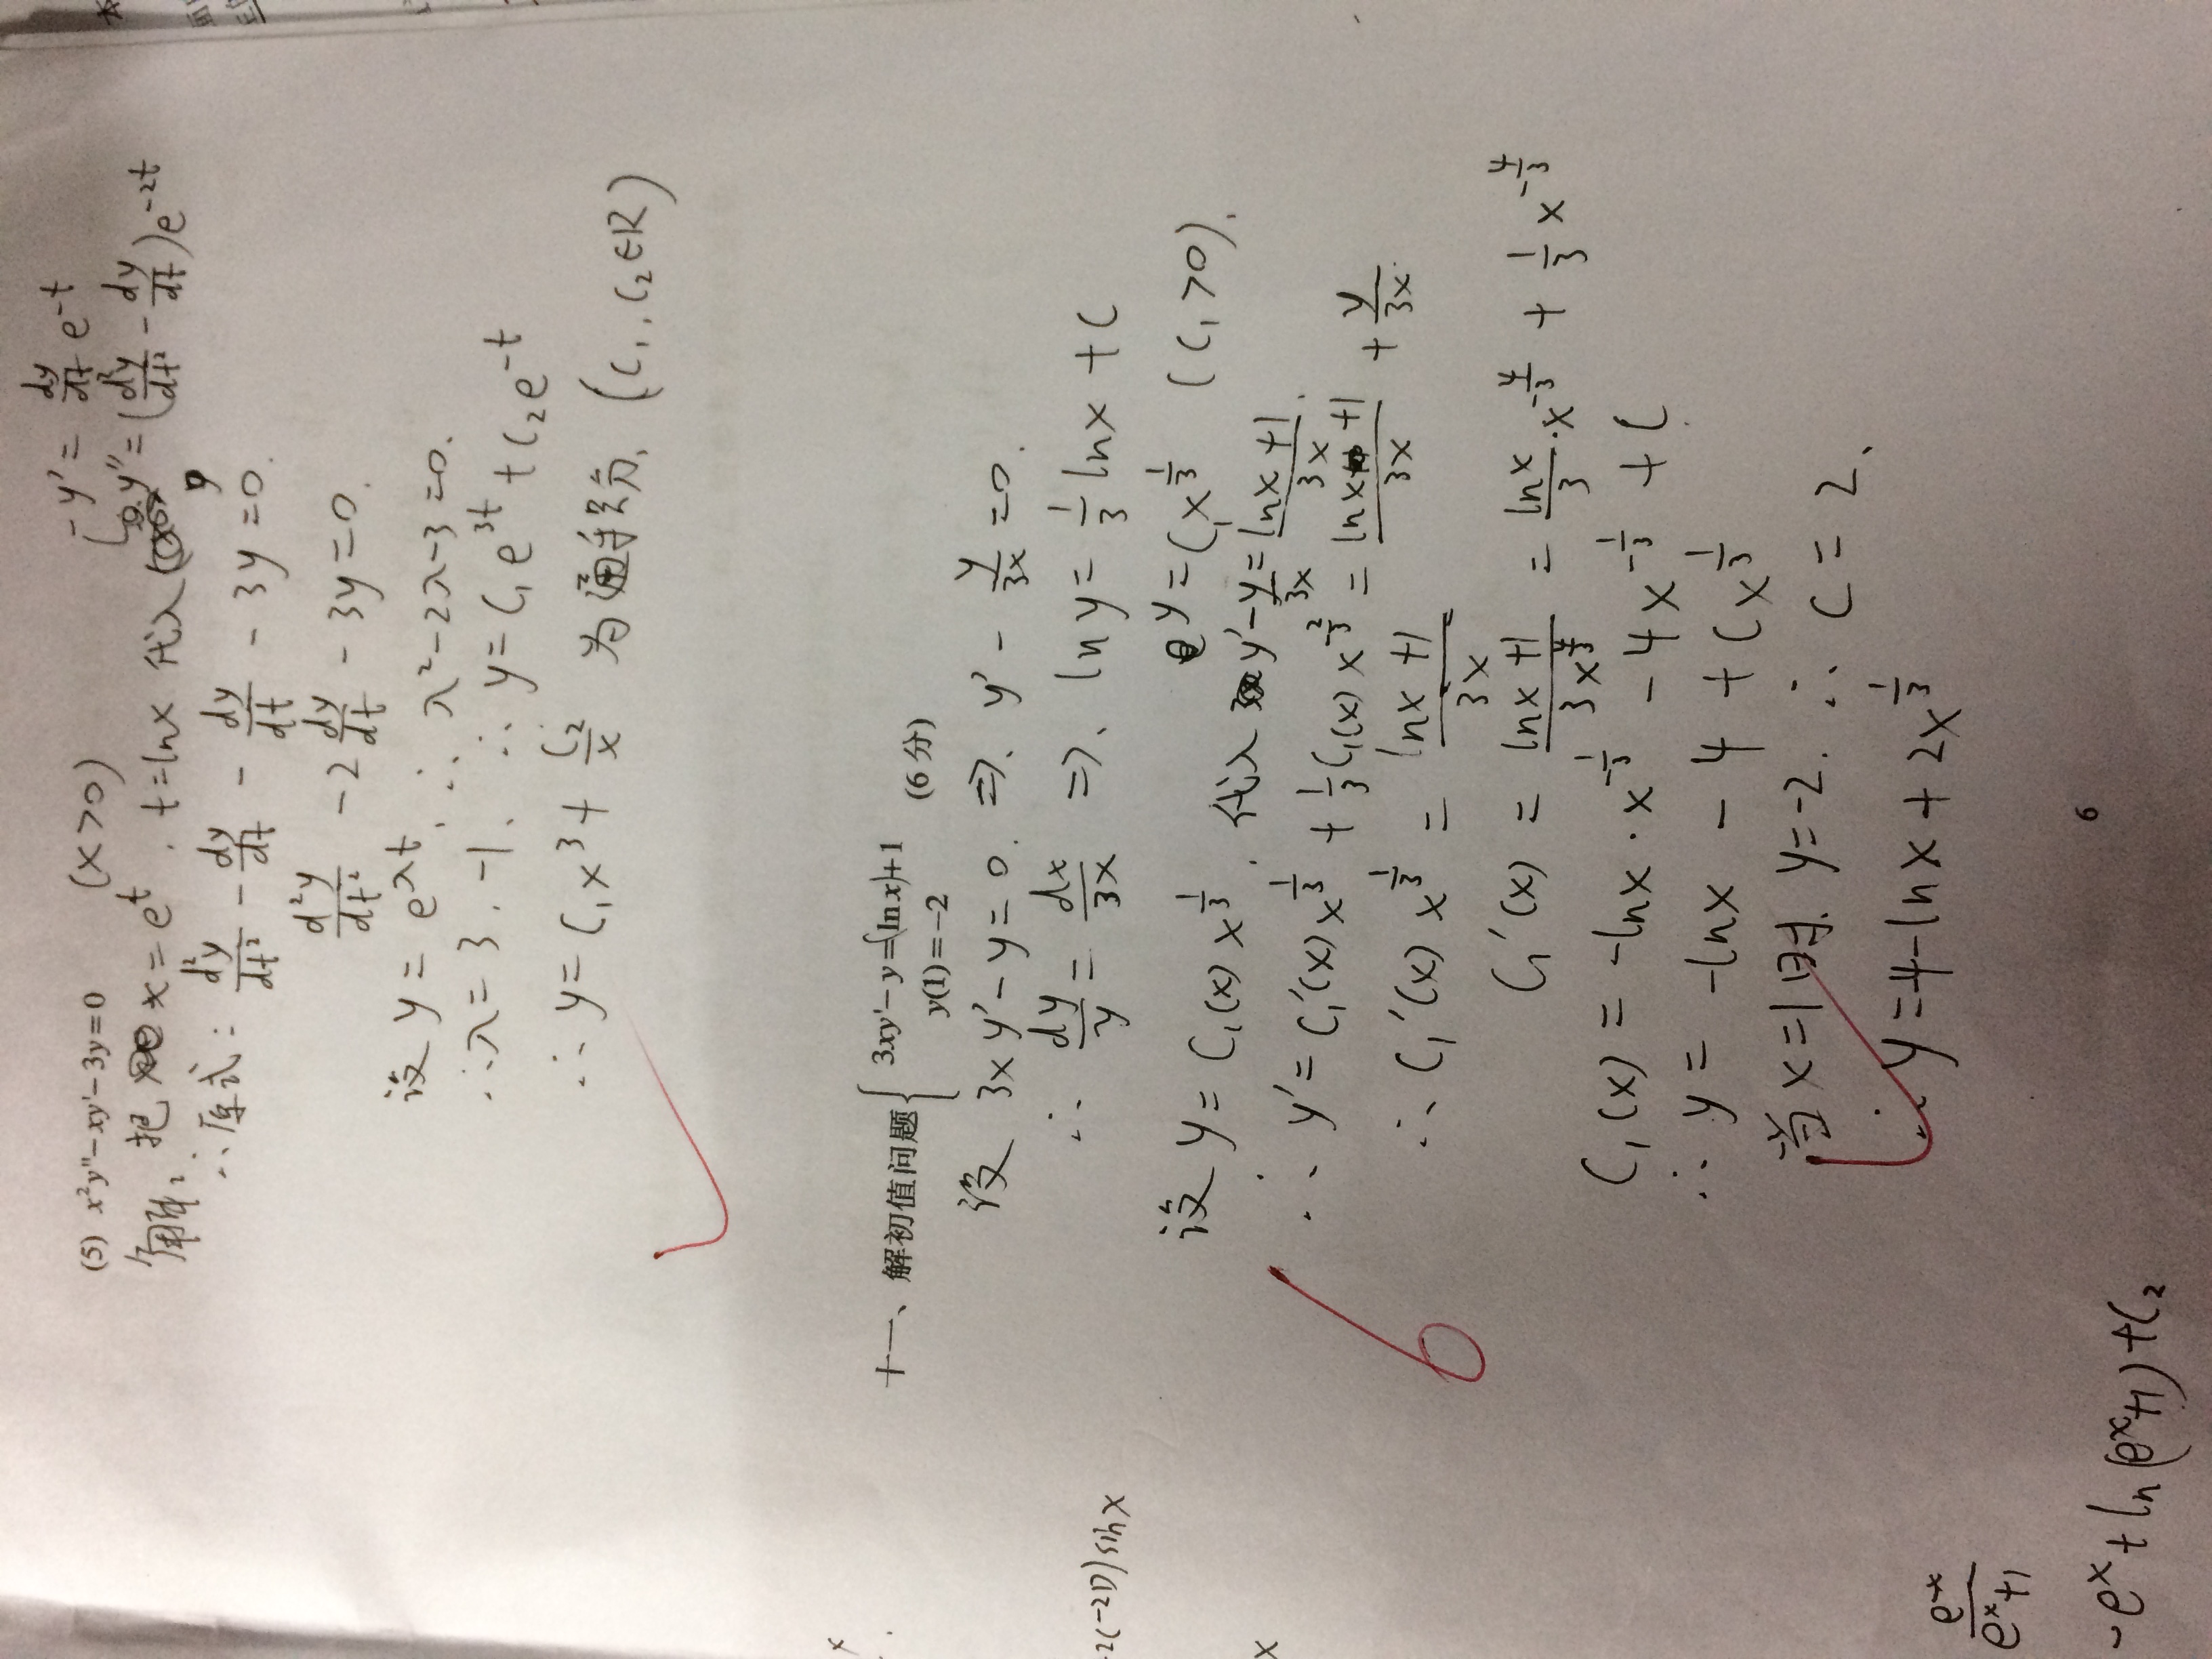 (5) x²y"-xy'-3y=0 (x>0)
-y'= dy/dt e^-t
y''=(d²y/dt² - dy/dt)e^-2t
解: 把 x=e^t . t=lnx 代入
∴原式: d²y/dt² - dy/dt - dy/dt - 3y=0.
d²y/dt² -2 dy/dt - 3y=0.
设 y= e^λt, ∴ λ²-2λ-3=0.
∴λ= 3, -1, ∴ y= C₁e^3t + C₂e^-t
∴ y= C₁x³+ C₂/x 为通积分, (C₁, C₂∈R)
十一、解初值问题{ 3xy'-y=(lnx)+1
y(1)=-2 (6 分)
设 3xy'-y=0. ⇒. y' - y/3x =0.
∴ dy/y = dx/3x ⇒. lny= 1/3 lnx + C
y=C₁x^1/3 (C₁>0).
设 y= C₁(x) x^1/3 . 代入 y'-y/3x = lnx+1/3x.
∴ y'= C₁'(x) x^1/3 + 1/3 C₁(x) x^-2/3 = lnx+1/3x + y/3x
∴ C₁'(x) x^1/3 = lnx+1/3x
C₁'(x) = lnx+1/3x^4/3 = lnx/3 · x^-4/3 + 1/3 x^-4/3
C₁(x) = -lnx · x^-1/3 - 4x^-1/3 + C
∴ y= -lnx - 4 + Cx^1/3
当x=1时, y=-2. ∴ C = 2.
∴ y=4-lnx+2x^1/3
6
6
x
-2(-2D)sinx
x
e^x/e^x+1
-e^x+ln(e^x+1)+C₂